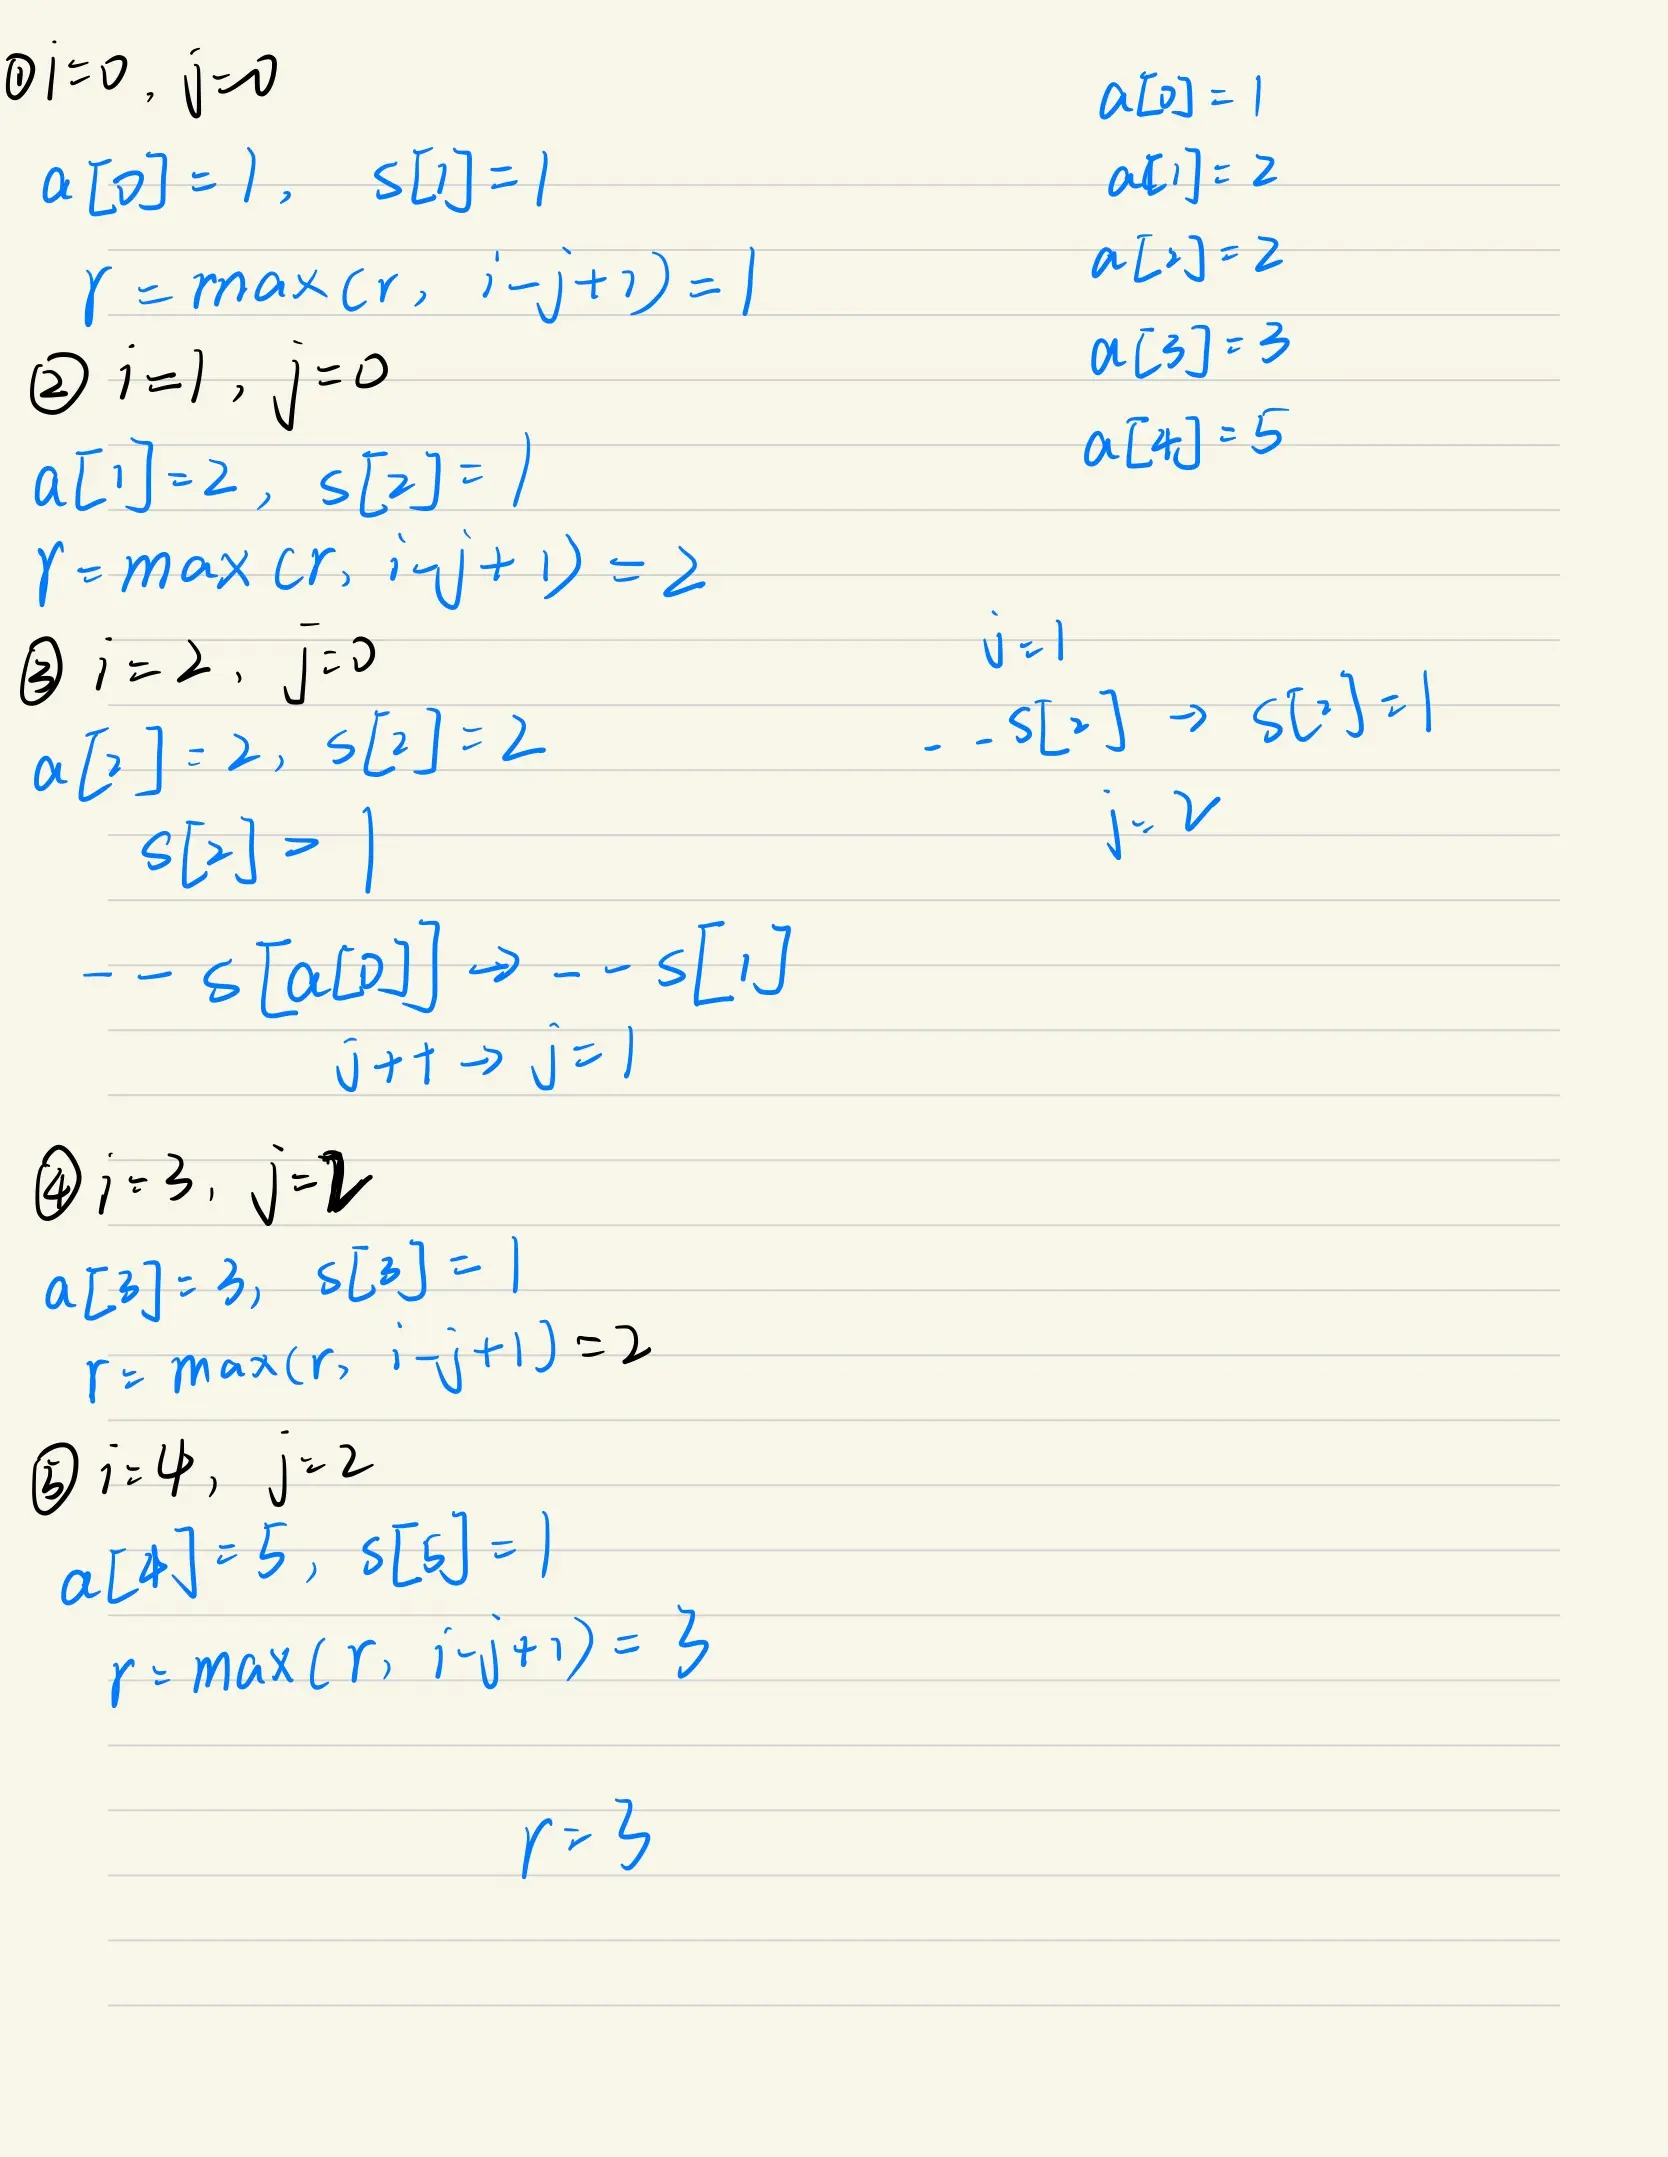 ① i=0, j=0
a[0]=1, s[1]=1
r=max(r, i-j+1)=1
② i=1, j=0
a[1]=2, s[2]=1
r=max(r, i-j+1)=2
③ i=2, j=0
a[2]=2, s[2]=2
s[2]>1
--s[a[0]]→--s[1]
j++→j=1
④ i=3, j=2
a[3]=3, s[3]=1
r=max(r, i-j+1)=2
⑤ i=4, j=2
a[4]=5, s[5]=1
r=max(r, i-j+1)=3
r=3
a[0]=1
a[1]=2
a[2]=2
a[3]=3
a[4]=5
j=1
--s[2]→s[2]=1
j=2